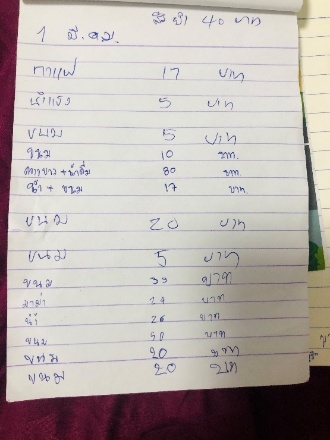 40 บาท
1 มี.คม.
กาแฟ 17 บาท
น้ำแข็ง 5 บาท
ขนม 5 บาท
ขนม 10 บาท.
+ น้ำดื่ม 80 บาท.
น้ำ + ขนม 17 บาท.
ขนม 20 บาท
ขนม 5 บาท
ขนม บาท
มาม่า 24 บาท
น้ำ 26 บาท
ขนม บาท
ขนม 20 บาท
ขนม 20 บาท